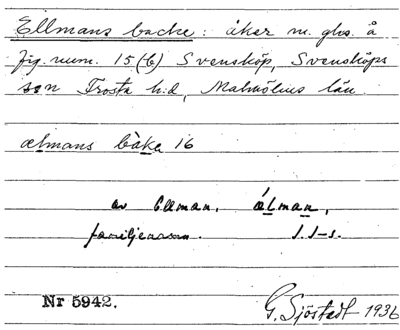 Ellmans backe: åker m. ghs. å
fig. num. 15(6) Svensköp, Svensköps
sqn Frosta h:d, Malmöhus län.
ælmans båka 16
av Ellman, ǽlman,
familjenamn. I. I-s.
Nr 5942.
G. Sjöstedt 1936